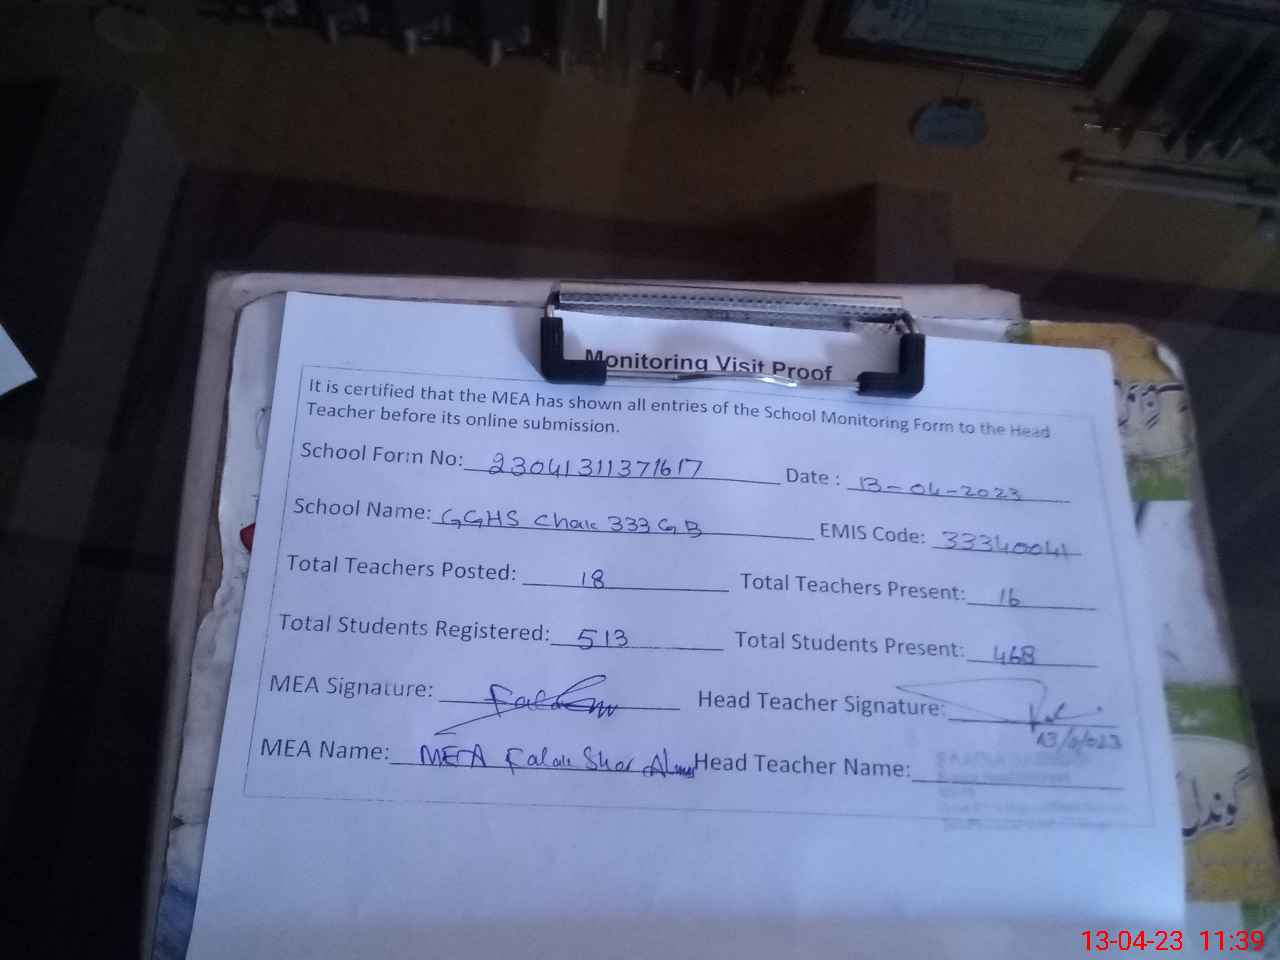 Monitoring Visit Proof
It is certified that the MEA has shown all entries of the School Monitoring Form to the Head
Teacher before its online submission.
School Form No: 23041311371617 Date : 13-04-2023
School Name: GGHS Chak 333 GB EMIS Code: 33340041
Total Teachers Posted: 18 Total Teachers Present: 16
Total Students Registered: 513 Total Students Present: 468
MEA Signature: Head Teacher Signature:
MEA Name: MEA Falak Sher Head Teacher Name:
گوندل
13-04-23 11:39